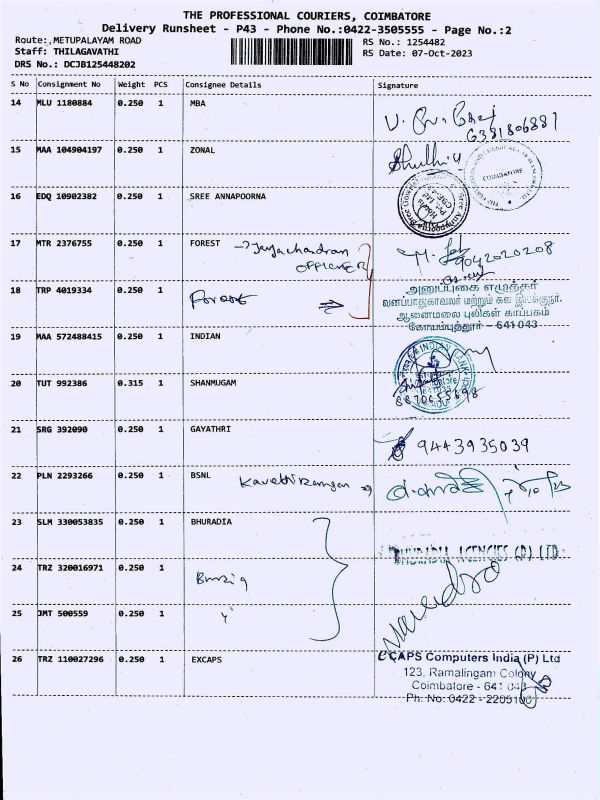 THE PROFESSIONAL COURIERS, COIMBATORE
Delivery Runsheet - P43 - Phone No.:0422-3505555 - Page No.:2
Route:,METUPALAYAM ROAD
RS No.: 1254482
Staff: THILAGAVATHI
RS Date: 07-Oct-2023
DRS No.: DCJB125448202
S No Consignment No Weight PCS Consignee Details Signature
14 MLU 1180884 0.250 1 MBA
6381806881
15 MAA 104904197 0.250 1 ZONAL
COIMBATORE
16 EDQ 10902382 0.250 1 SREE ANNAPOORNA
17 MTR 2376755 0.250 1 FOREST → Jayachandran
9042020208
18 TRP 4019334 0.250 1 Forest
அனுப்புகை எழுத்தர்
வனப்பாதுகாவலர் மற்றும் கள இயக்குநர்.
ஆனைமலை புலிகள் காப்பகம்
கோயம்புத்தூர் - 641 043
19 MAA 572488415 0.250 1 INDIAN
20 TUT 992386 0.315 1 SHANMUGAM
8870655698
21 SRG 392090 0.250 1 GAYATHRI
9443935039
22 PLN 2293266 0.250 1 BSNL
23 SLM 330053835 0.250 1 BHURADIA
BHURADIA AGENCIES (P) LTD
24 TRZ 320016971 0.250 1
25 JMT 500559 0.250 1
26 TRZ 110027296 0.250 1 EXCAPS
eCAPS Computers India (P) Ltd
123, Ramalingam Colony
Coimbatore - 641 043
Ph. No: 0422 - 2205100